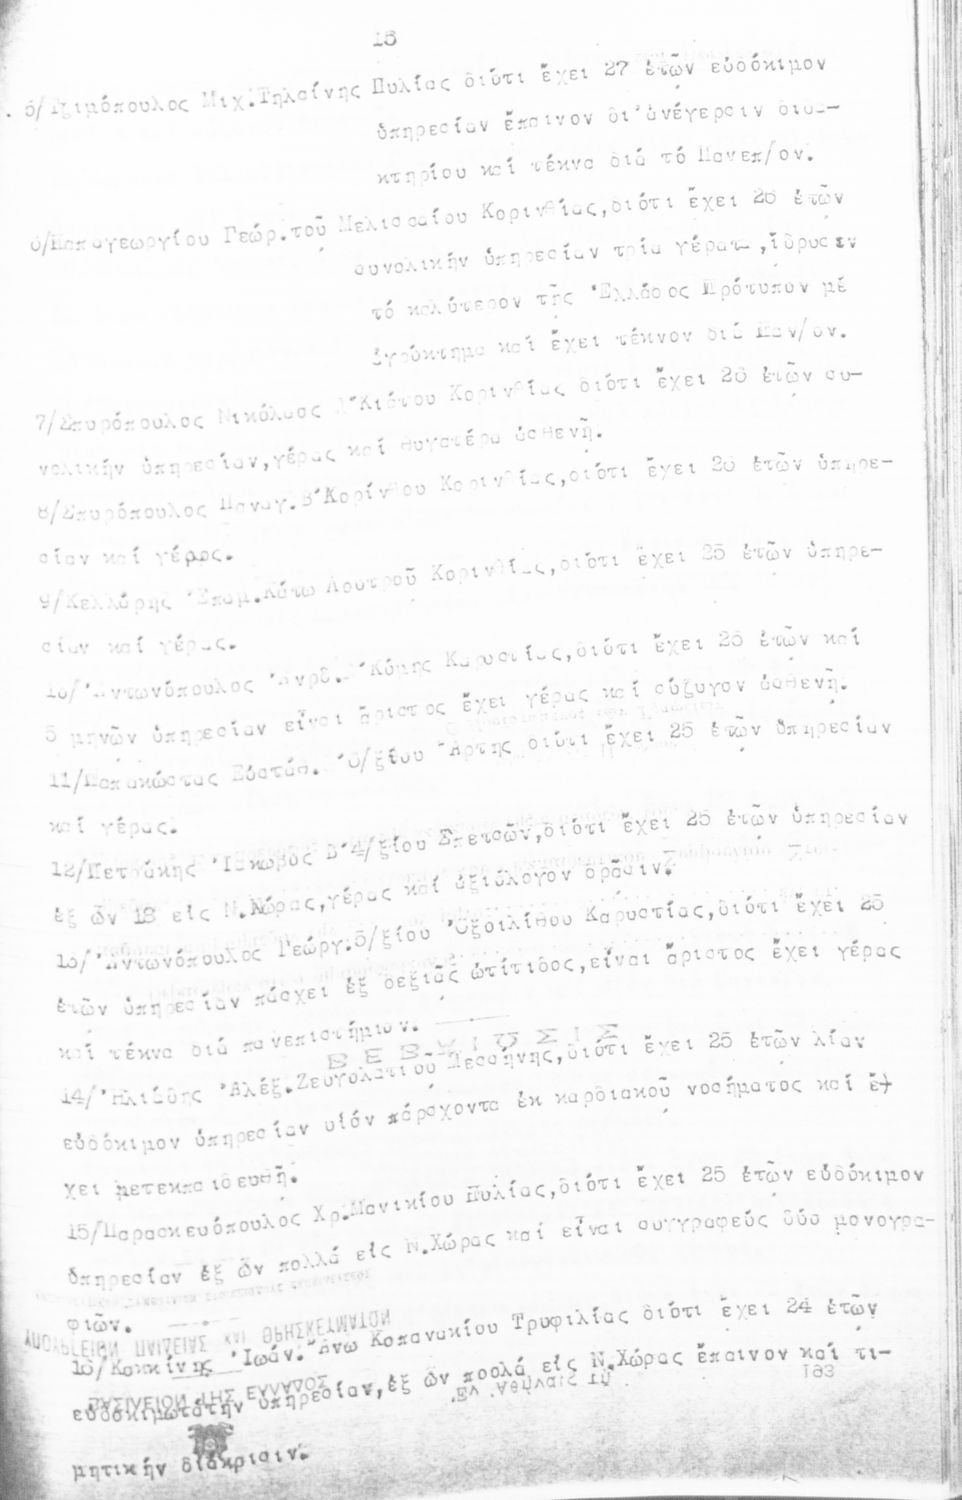 16
5/Τζιμόπουλος Μιχ.Τηλαίνης Πυλίας διότι ἔχει 27 ἐτῶν εὐδόκιμον
ὑπηρεσίαν ἔπαινον δι'ἀνέγερσιν διδα-
κτηρίου καί τέκνα διά τό Πανεπ/ον.
6/Παπαγεωργίου Γεώρ.τοῦ Μελισσαίου Κορινθίας,διότι ἔχει 26 ἐτῶν
συνολικήν ὑπηρεσίαν τρία γέρατα,ἵδρυσεν
τό καλύτερον τῆς Ἑλλάδος Πρότυπον μέ
ἀγρόκτημα καί ἔχει τέκνον διά Παν/ον.
7/Σπυρόπουλος Νικόλαος Α΄Κιάτου Κορινθίας διότι ἔχει 26 ἐτῶν συ-
νολικήν ὑπηρεσίαν,γέρας καί θυγατέρα ἀσθενῆ.
8/Σπυρόπουλος Παναγ.Β΄Κορίνθου Κορινθίας,διότι ἔχει 26 ἐτῶν ὑπηρε-
σίαν καί γέρας.
9/Κελλάρης Ἐπαμ.Κάτω Λουτροῦ Κορινθίας,διότι ἔχει 25 ἐτῶν ὑπηρε-
σίαν καί γέρας.
10/Ἀντωνόπουλος Ἀνρδ. Κύμης Καρυστίας,διότι ἔχει 25 ἐτῶν καί
5 μηνῶν ὑπηρεσίαν εἶναι ἄριστος ἔχει γέρας καί σύζυγον ἀσθενῆ.
11/Παπακώστας Εὐστάθ. 6/ξίου Ἄρτης διότι ἔχει 25 ἐτῶν ὑπηρεσίαν
καί γέρας.
12/Πετράκης Ἰάκωβος Β΄4/ξίου Σπετσῶν,διότι ἔχει 25 ἐτῶν ὑπηρεσίαν
ἐξ ὧν 18 εἰς Ν.Χώρας,γέρας καί ἀξιόλογον δρᾶσιν.
13/Ἀντωνόπουλος Γεώργ.5/ξίου Ὀξυλίθου Καρυστίας,διότι ἔχει 25
ἐτῶν ὑπηρεσίαν πάσχει ἐξ δεξιᾶς ὠτίτιδος,εἶναι ἄριστος ἔχει γέρας
καί τέκνα διά πανεπιστήμιον.
ΒΕΒΑΙΩΣΙΣ
14/Ἠλιάδης Ἀλέξ.Ζευγολατιοῦ Μεσσήνης,διότι ἔχει 25 ἐτῶν λίαν
εὐδόκιμον ὑπηρεσίαν υἱόν πάσχοντα ἐκ καρδιακοῦ νοσήματος καί ἔ-
χει μετεκπαιδευθῆ.
15/Παρασκευόπουλος Χρ.Μανικίου Πυλίας,διότι ἔχει 25 ἐτῶν εὐδόκιμον
ὑπηρεσίαν ἐξ ὧν πολλά εἰς Ν.Χώρας καί εἶναι συγγραφεύς δύο μονογρα-
φιῶν.
ΥΠΟΥΡΓΕΙΟΝ ΠΑΙΔΕΙΑΣ ΚΑΙ ΘΡΗΣΚΕΥΜΑΤΩΝ
16/Κοκκίνης Ἰωάν.Ἄνω Κοπανακίου Τριφυλίας διότι ἔχει 24 ἐτῶν
εὐδοκιμωτάτην ὑπηρεσίαν,ἐξ ὧν ποολά εἰς Ν.Χώρας ἔπαινον καί τι-
ΒΑΣΙΛΕΙΟΝ ΤΗΣ ΕΛΛΑΔΟΣ
Ἐν Ἀθήναις τῇ 193
μητικήν διάκρισιν.